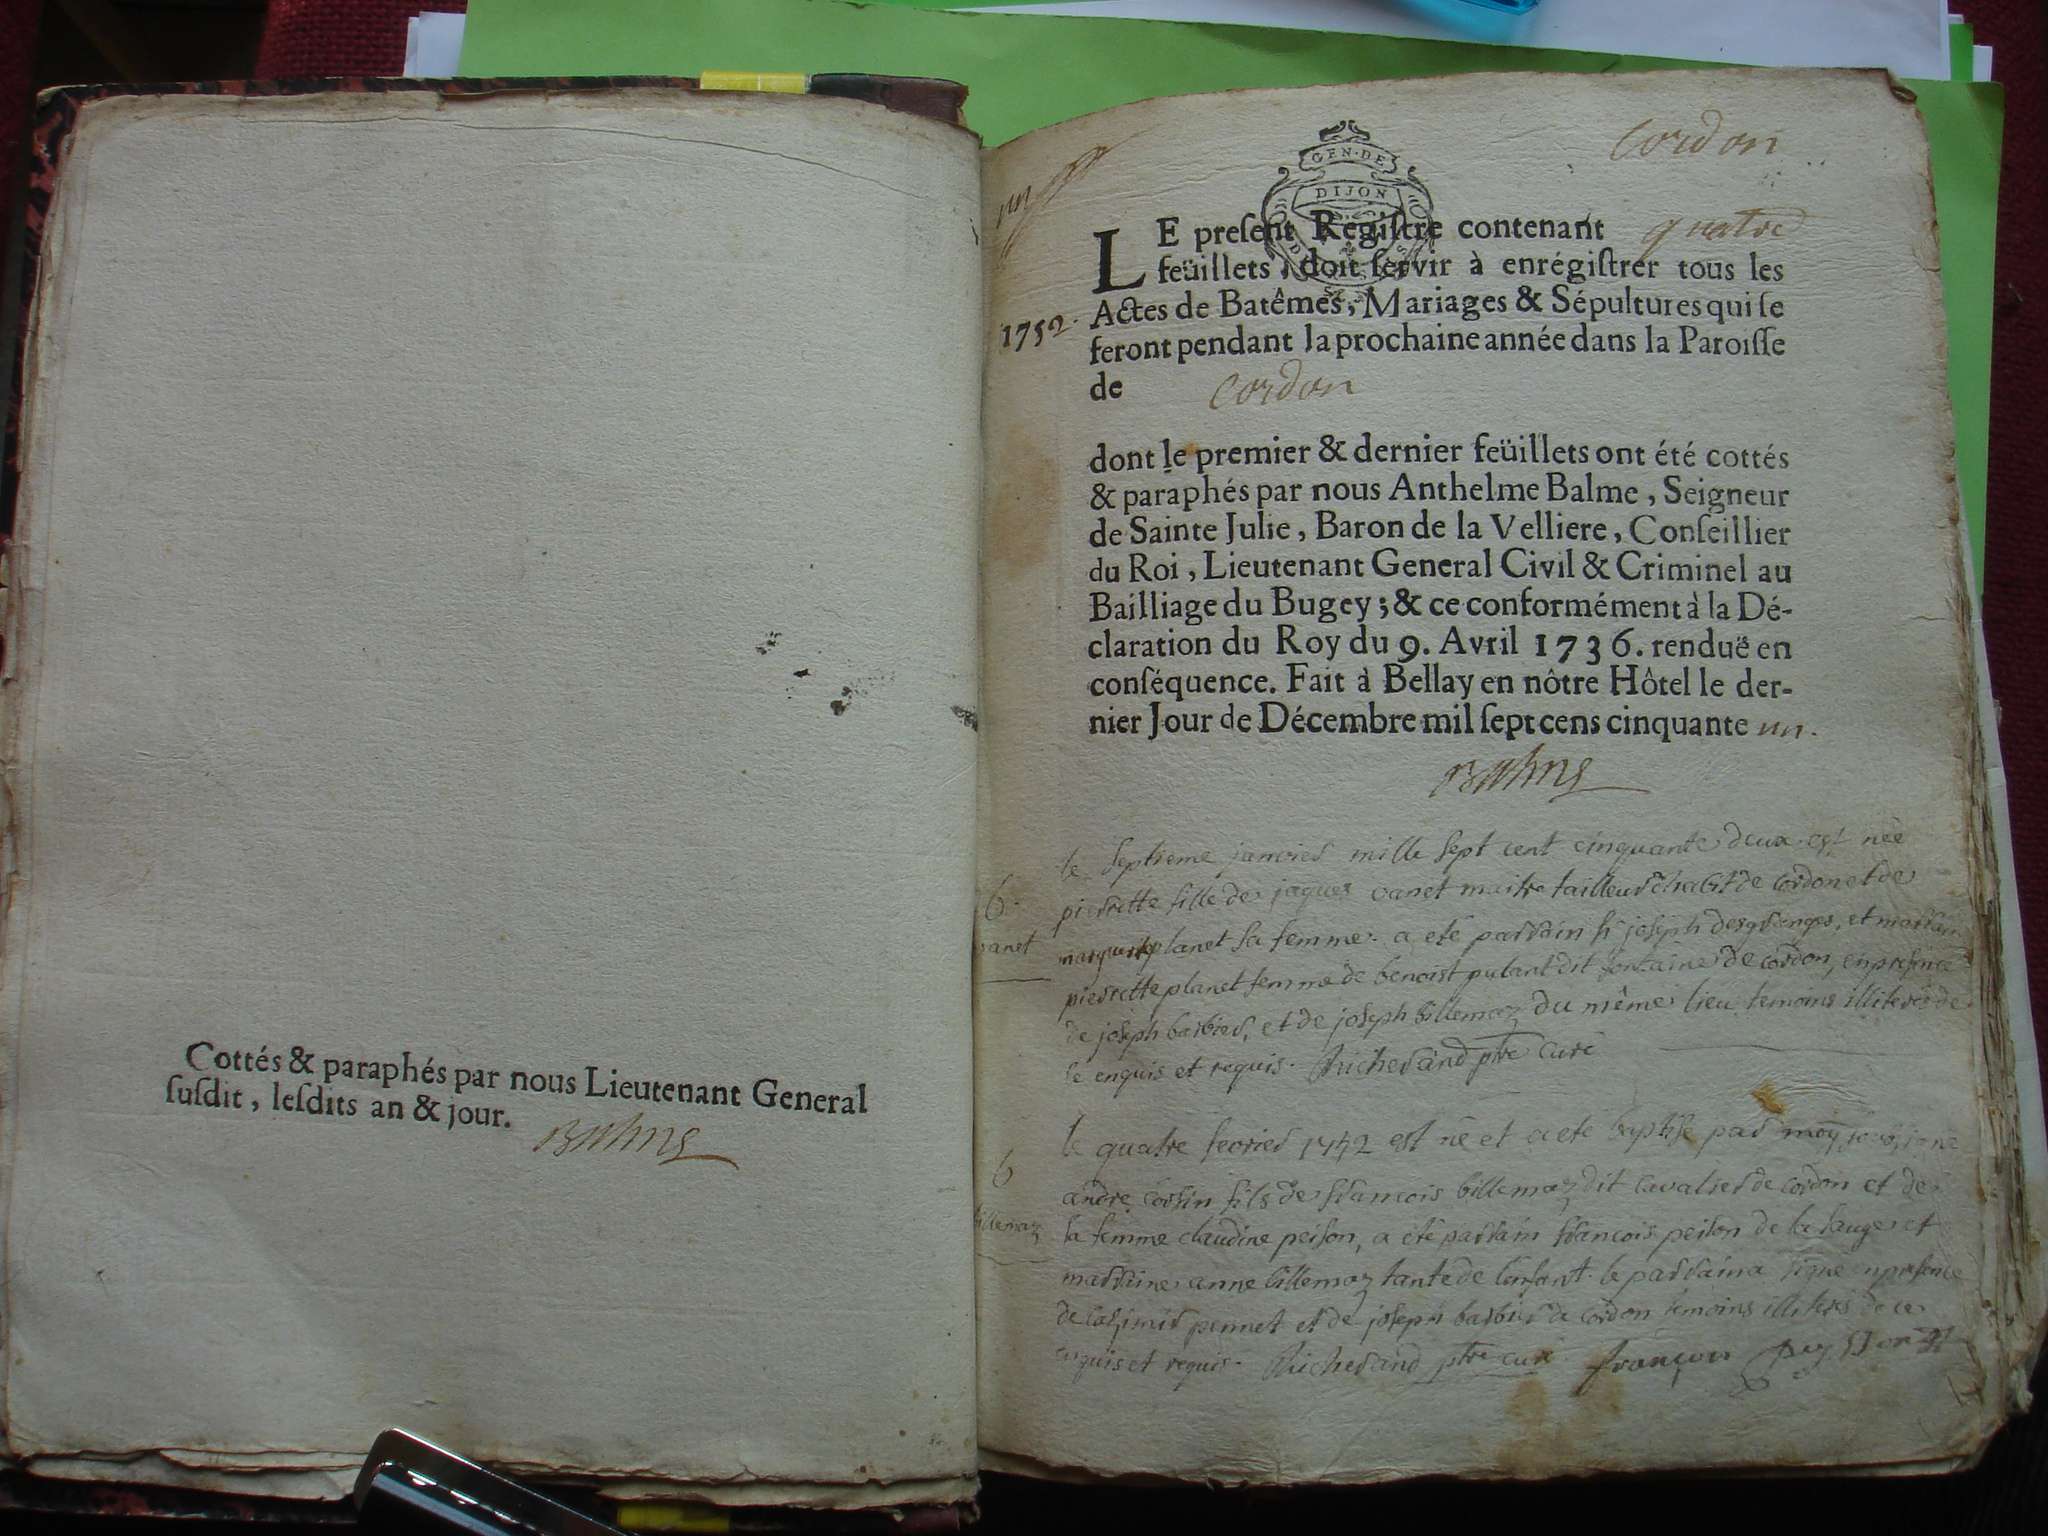 Cottés & paraphés par nous Lieutenant General
ſuſdit, leſdits an & jour.
Balme
un
cordon
GEN·DE
DIJON
LE preſent Regiſtre contenant quatre
feüillets, doit ſervir à enrégiſtrer tous les
Actes de Batêmes, Mariages & Sépultures qui ſe
1752.
feront pendant la prochaine année dans la Paroiſſe
de cordon
dont le premier & dernier feüillets ont été cottés
& paraphés par nous Anthelme Balme, Seigneur
de Sainte Julie, Baron de la Velliere, Conſeillier
du Roi, Lieutenant General Civil & Criminel au
Bailliage du Bugey; & ce conformément à la Dé-
claration du Roy du 9. Avril 1736. renduë en
conſéquence. Fait à Bellay en nôtre Hôtel le der-
nier Jour de Décembre mil ſept cens cinquante un.
Balme
le septieme janvier mille sept cent cinquante deux est née
b.
pierrette fille de jaques vanet maitre tailleur habt de cordon et de
vanet
planet sa femme. a eté parrain sr joseph desgranges, et marraine
pierrette planet femme de benoist dit fontaine de cordon, en presence
de joseph barbier, et de joseph billemaz du même lieu temoins illiterés de
ce enquis et requis. Richerand ptre curé
le quatre fevrier 1752 est né et a eté baptisé par moy
b
andre fils de francois billemaz dit cavalier de cordon et de
billemaz
sa femme claudine peison, a eté parrain francois peison de la sauge et
marraine anne billemaz tante de l'enfant. le parrain a signé en presence
de pennet et de joseph barbier de cordon temoins illiterés de ce
enquis et requis. Richerand ptre curé françois